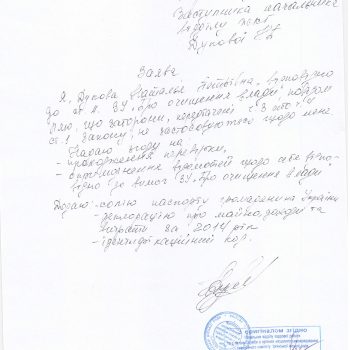 Заступника начальника
відділу
Дукової
Заява
Я, Дукова Наталія, відповідно
до ст. 4 ЗУ „Про очищення влади" повідом-
ляю, що заборони, визначені ч. 3 або 4
ст. 1 Закону, не застосовуються щодо мене.
Надаю згоду на:
- проходження перевірки,
- оприлюднення відомостей щодо себе відпо-
відно до вимог ЗУ „Про очищення влади"
Додаю: - копію паспорту громадянина України
- декларацію про майно, доходи та
витрати за 2014 рік
- ідентифікаційний код.
З оригіналом згідно